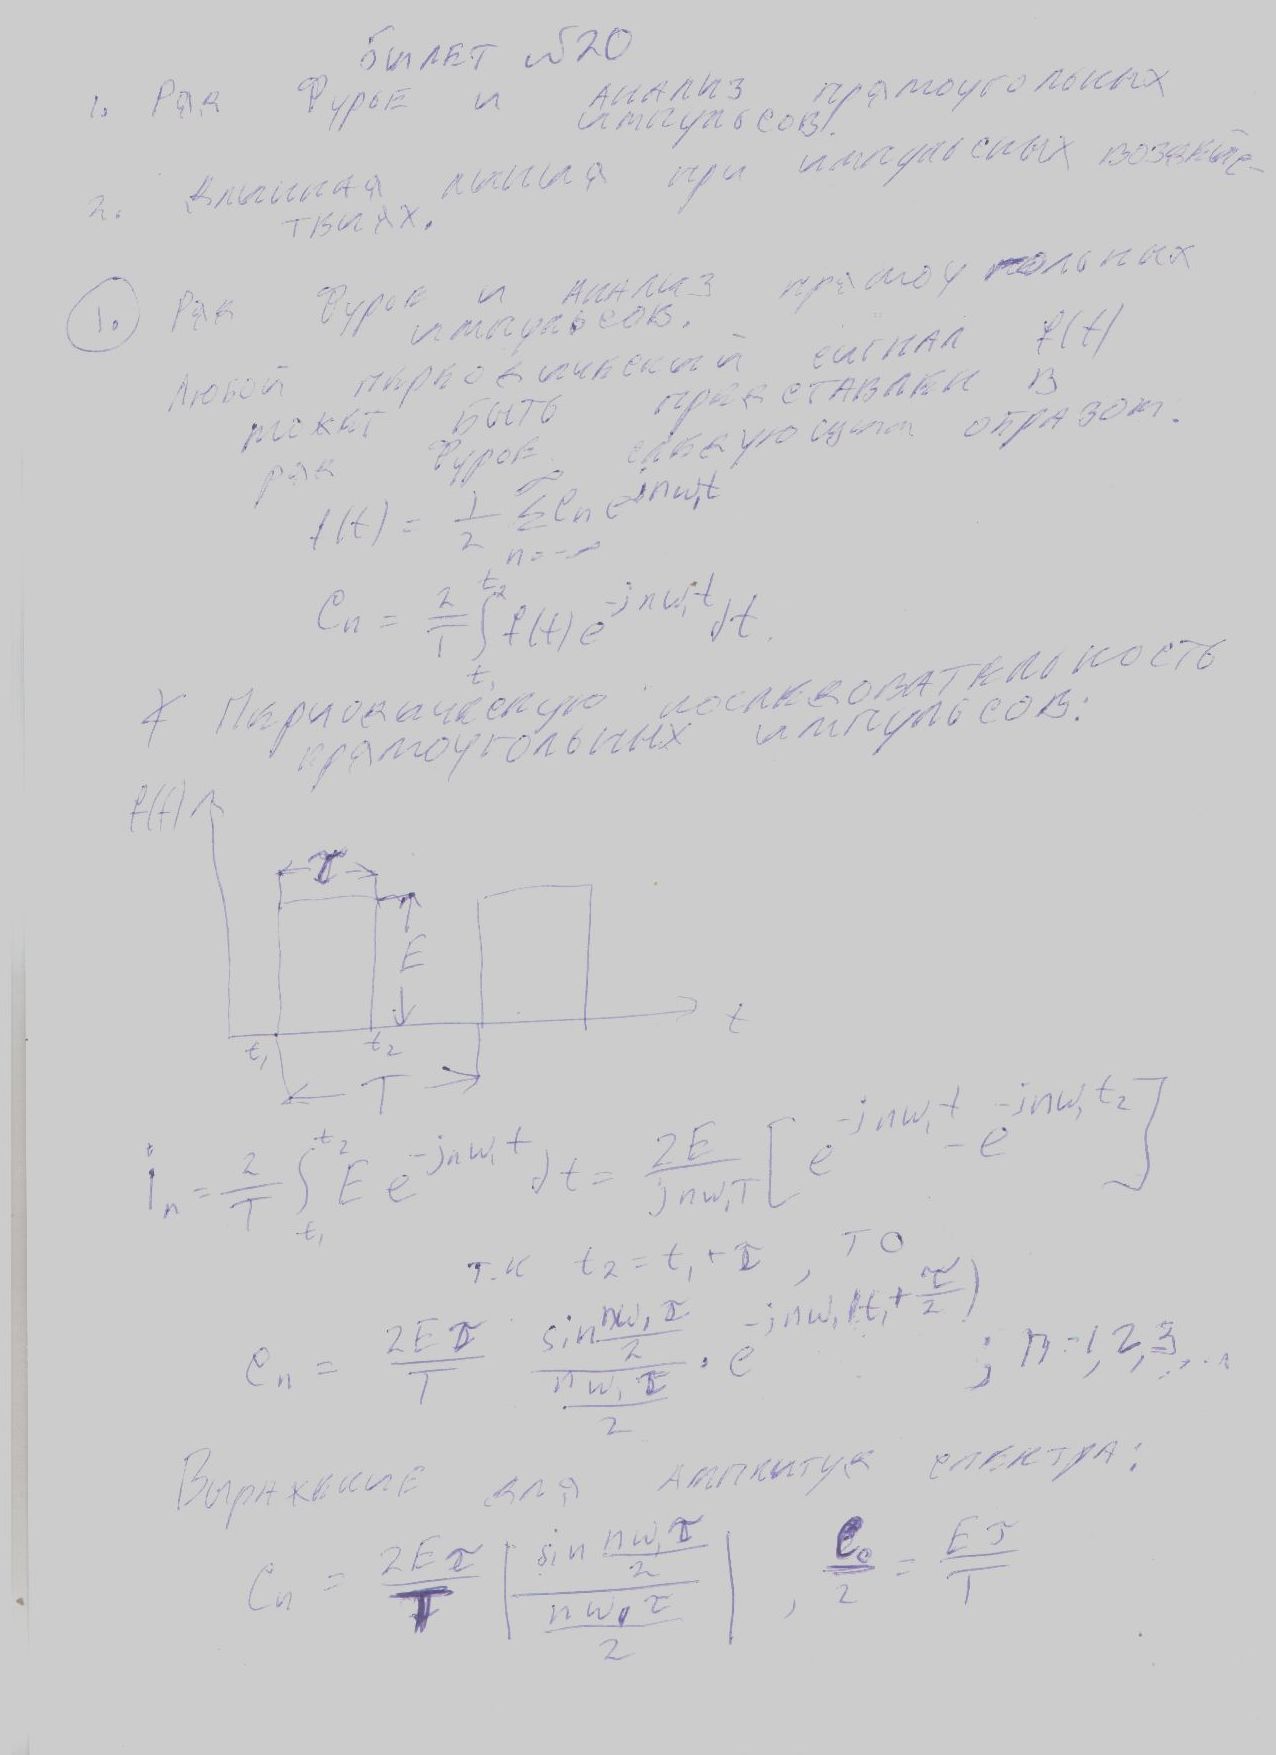 БИЛЕТ №20
1. Ряд Фурье и анализ прямоугольных
импульсов.
2. Длинная линия при импульсных воздейс-
твиях.
1. Ряд Фурье и анализ прямоугольных
импульсов.
Любой периодический сигнал f(t)
может быть представлен в
ряд Фурье следующим образом:
f(t) = 1/2 ∑_{n=-∞}^{∞} C_n e^{jnω₁t}
C_n = 2/T ∫_{t₁}^{t₂} f(t) e^{-jnω₁t} dt.
Периодическую последовательность
прямоугольных импульсов:
f(t)
τ
E
t₁ t₂ t
T
İ_n = 2/T ∫_{t₁}^{t₂} E e^{-jnω₁t} dt = 2E/(jnω₁T) [e^{-jnω₁t} - e^{-jnω₁t₂}]
т.к t₂ = t₁ + τ, то
C_n = 2Eτ/T · (sin nω₁τ/2)/(nω₁τ/2) · e^{-jnω₁(t₁+τ/2)} ; n=1,2,3,...
Выражение для амплитуд спектра:
C_n = 2Eτ/T |(sin nω₁τ/2)/(nω₁τ/2)|, C₀/2 = Eτ/T